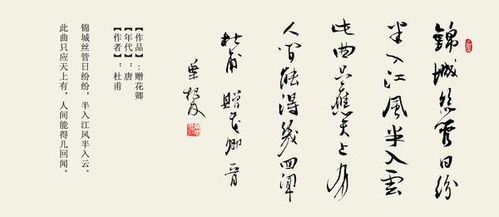 錦城絲管日紛
半入江風半入雲
此曲只應天上有
人间能得幾回闻
杜甫 赠花卿
【作品】:赠花卿
【年代】:唐
【作者】:杜甫
锦城丝管日纷纷，半入江风半入云。
此曲只应天上有，人间能得几回闻。